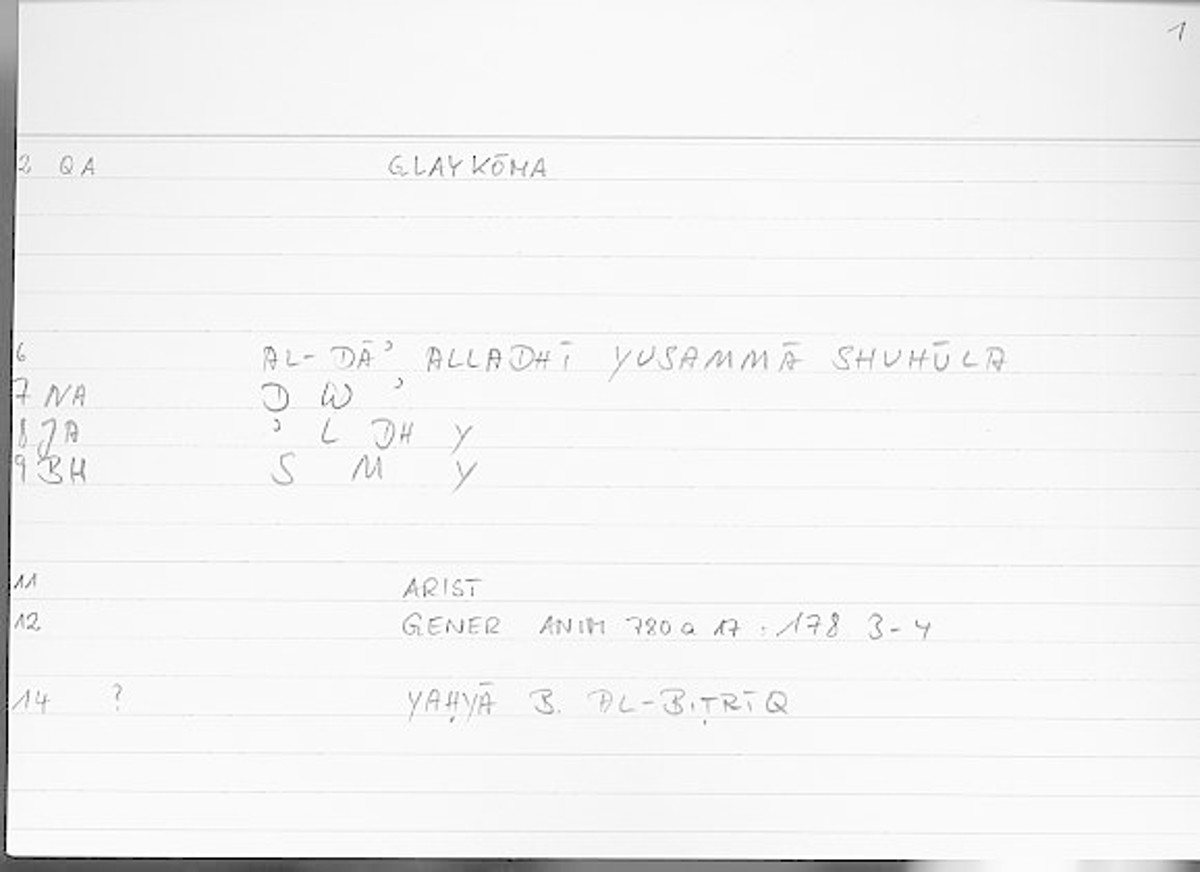 1
2 QA GLAYKŌMA
6 AL-DĀʾ ALLADHĪ YUSAMMĀ SHUHŪLA
7 NA D W ʾ
8 JA ʾ L DH Y
9 BH S M Y
11 ARIST
12 GENER ANIM 780 a 17 : 178 3-4
14 ? YAḤYĀ B. AL-BIṬRĪQ